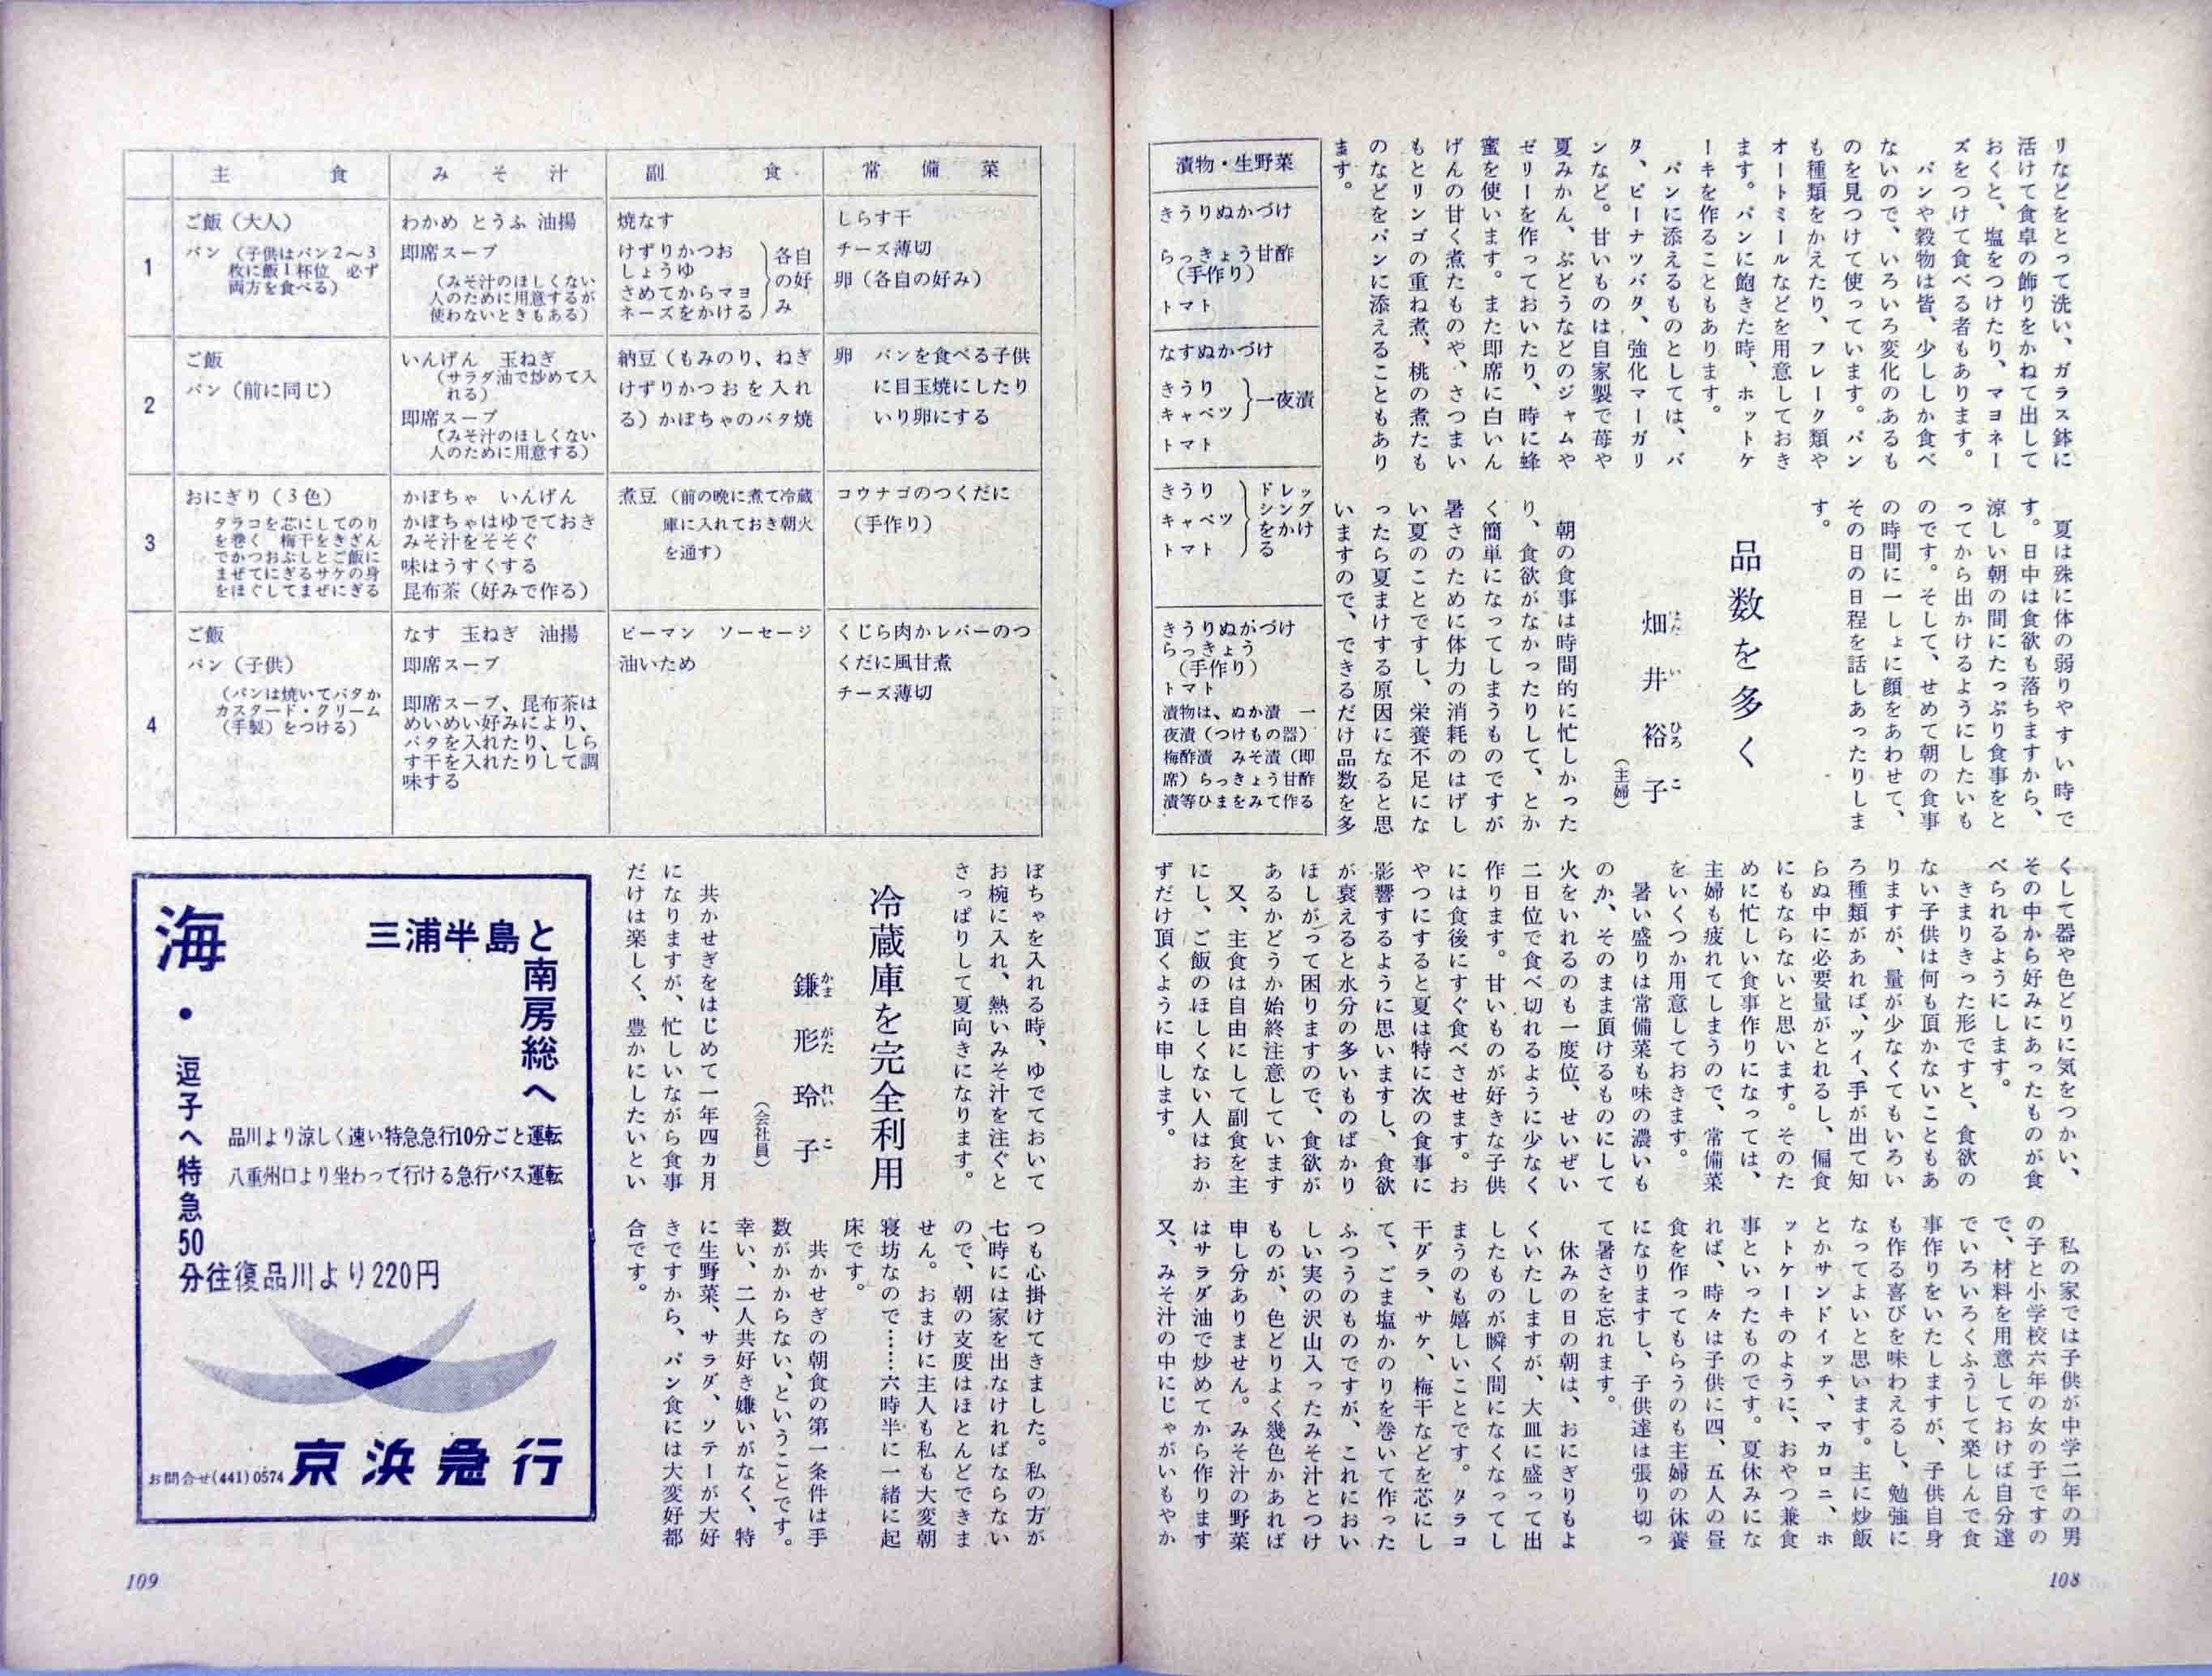 リなどをとって洗い、ガラス鉢に
活けて食卓の飾りをかねて出して
おくと、塩をつけたり、マヨネー
ズをつけて食べる者もあります。
パンや穀物は皆、少ししか食べ
ないので、いろいろ変化のあるも
のを見つけて使っています。パン
も種類をかえたり、フレーク類や
オートミールなどを用意しておき
ます。パンに飽きた時、ホットケ
ーキを作ることもあります。
パンに添えるものとしては、バ
タ、ピーナツバタ、強化マーガリ
ンなど。甘いものは自家製で苺や
夏みかん、ぶどうなどのジャムや
ゼリーを作っておいたり、時に蜂
蜜を使います。また即席に白いん
げんの甘く煮たものや、さつまい
もとリンゴの重ね煮、桃の煮たも
のなどをパンに添えることもあり
ます。
夏は殊に体の弱りやすい時で
す。日中は食欲も落ちますから、
涼しい朝の間にたっぷり食事をと
ってから出かけるようにしたいも
のです。そして、せめて朝の食事
の時間に一しょに顔をあわせて、
その日の日程を話しあったりしま
す。
品数を多く
畑井裕子
はたいひろこ
(主婦)
朝の食事は時間的に忙しかった
り、食欲がなかったりして、とか
く簡単になってしまうものですが
暑さのために体力の消耗のはげし
い夏のことですし、栄養不足にな
ったら夏まけする原因になると思
いますので、できるだけ品数を多
くして器や色どりに気をつかい、
その中から好みにあったものが食
べられるようにします。
きまりきった形ですと、食欲の
ない子供は何も頂かないこともあ
りますが、量が少なくてもいろい
ろ種類があれば、ツイ、手が出て知
らぬ中に必要量がとれるし、偏食
にもならないと思います。そのた
めに忙しい食事作りになっては、
主婦も疲れてしまうので、常備菜
をいくつか用意しておきます。
暑い盛りは常備菜も味の濃いも
のか、そのまま頂けるものにして
火をいれるのも一度位、せいぜい
二日位で食べ切れるように少なく
作ります。甘いものが好きな子供
には食後にすぐ食べさせます。お
やつにすると夏は特に次の食事に
影響するように思いますし、食欲
が衰えると水分の多いものばかり
ほしがって困りますので、食欲が
あるかどうか始終注意しています
又、主食は自由にして副食を主
にし、ご飯のほしくない人はおか
ずだけ頂くように申します。
私の家では子供が中学二年の男
の子と小学校六年の女の子ですの
で、材料を用意しておけば自分達
でいろいろくふうして楽しんで食
事作りをいたしますが、子供自身
も作る喜びを味わえるし、勉強に
なってよいと思います。主に炒飯
とかサンドイッチ、マカロニ、ホ
ットケーキのように、おやつ兼食
事といったものです。夏休みにな
れば、時々は子供に四、五人の昼
食を作ってもらうのも主婦の休養
になりますし、子供達は張り切っ
て暑さを忘れます。
休みの日の朝は、おにぎりもよ
くいたしますが、大皿に盛って出
したものが瞬く間になくなってし
まうのも嬉しいことです。タラコ
干ダラ、サケ、梅干などを芯にし
て、ごま塩かのりを巻いて作った
ふつうのものですが、これにおい
しい実の沢山入ったみそ汁とつけ
ものが、色どりよく幾色かあれば
申し分ありません。みそ汁の野菜
はサラダ油で炒めてから作ります
又、みそ汁の中にじゃがいもやか
108
漬物・生野菜
きうりぬかづけ
らっきょう甘酢
(手作り)
トマト
なすぬかづけ
きうり
キャベツ
一夜漬
トマト
きうり
キャベツ
トマト
ドレッ
シング
をかけ
る
きうりぬかづけ
らっきょう
(手作り)
トマト
漬物は、ぬか漬 一
夜漬(つけもの器)
梅酢漬 みそ漬(即
席)らっきょう甘酢
漬等ひまをみて作る
主食 みそ汁 副食 常備菜
1
ご飯(大人)
パン(子供はパン2〜3
枚に飯1杯位 必ず
両方を食べる)
わかめ とうふ 油揚
即席スープ
(みそ汁のほしくない
人のために用意するが
使わないときもある)
焼なす
けずりかつお
しょうゆ
さめてからマヨ
ネーズをかける
各自
の好
み
しらす干
チーズ薄切
卵(各自の好み)
2
ご飯
パン(前に同じ)
いんげん 玉ねぎ
(サラダ油で炒めて入
れる)
即席スープ
(みそ汁のほしくない
人のために用意する)
納豆(もみのり、ねぎ
けずりかつおを入れ
る)かぼちゃのバタ焼
卵 パンを食べる子供
に目玉焼にしたり
いり卵にする
3
おにぎり(3色)
タラコを芯にしてのり
を巻く 梅干をきざん
でかつおぶしとご飯に
まぜてにぎるサケの身
をほぐしてまぜにぎる
かぼちゃ いんげん
かぼちゃはゆでておき
みそ汁をそそぐ
味はうすくする
昆布茶(好みで作る)
煮豆(前の晩に煮て冷蔵
庫に入れておき朝火
を通す)
コウナゴのつくだに
(手作り)
4
ご飯
パン(子供)
(パンは焼いてバタか
カスタード・クリーム
(手製)をつける)
なす 玉ねぎ 油揚
即席スープ
即席スープ、昆布茶は
めいめい好みにより、
バタを入れたり、しら
す干を入れたりして調
味する
ピーマン ソーセージ
油いため
くじら肉かレバーのつ
くだに風甘煮
チーズ薄切
ぼちゃを入れる時、ゆでておいて
お椀に入れ、熱いみそ汁を注ぐと
さっぱりして夏向きになります。
冷蔵庫を完全利用
鎌形玲子
かまがたれいこ
(会社員)
共かせぎをはじめて一年四カ月
になりますが、忙しいながら食事
だけは楽しく、豊かにしたいとい
つも心掛けてきました。私の方が
七時には家を出なければならない
ので、朝の支度はほとんどできま
せん。おまけに主人も私も大変朝
寝坊なので……六時半に一緒に起
床です。
共かせぎの朝食の第一条件は手
数がかからない、ということです。
幸い、二人共好き嫌いがなく、特
に生野菜、サラダ、ソテーが大好
きですから、パン食には大変好都
合です。
三浦半島と
南房総へ
海・逗子へ特急50分
品川より涼しく速い特急急行10分ごと運転
八重州口より坐わって行ける急行バス運転
往復品川より220円
京浜急行
お問合せ(441)0574
109